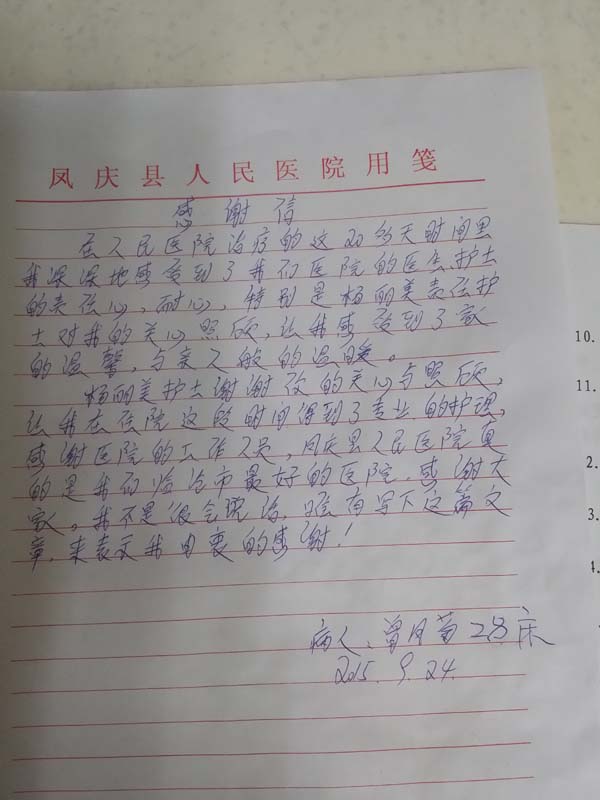 凤庆县人民医院用笺
感谢信
在人民医院治疗的这20多天时间里
我深深地感受到了我们医院的医生.护士
的责任心,耐心,特别是杨丽美责任护
士对我的关心照顾,让我感受到了家
的温馨,与亲人般的温暖。
杨丽美护士谢谢你的关心与照顾,
让我在住院这段时间得到了专业的护理,
感谢医院的工作人员,凤庆县人民医院真
的是我们临沧市最好的医院.感谢大
家。我不是很会说话.只有写下这篇文
章.来表示我由衷的感谢!
病人、曾月菊28床
2015.9.24.
10.
11.
2.
3.
4.